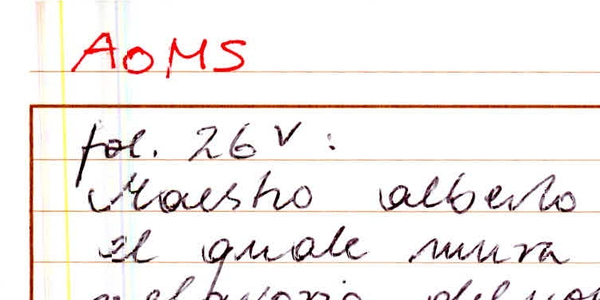 AOMS
fol. 26 V :
Maestro alberto
el quale mura